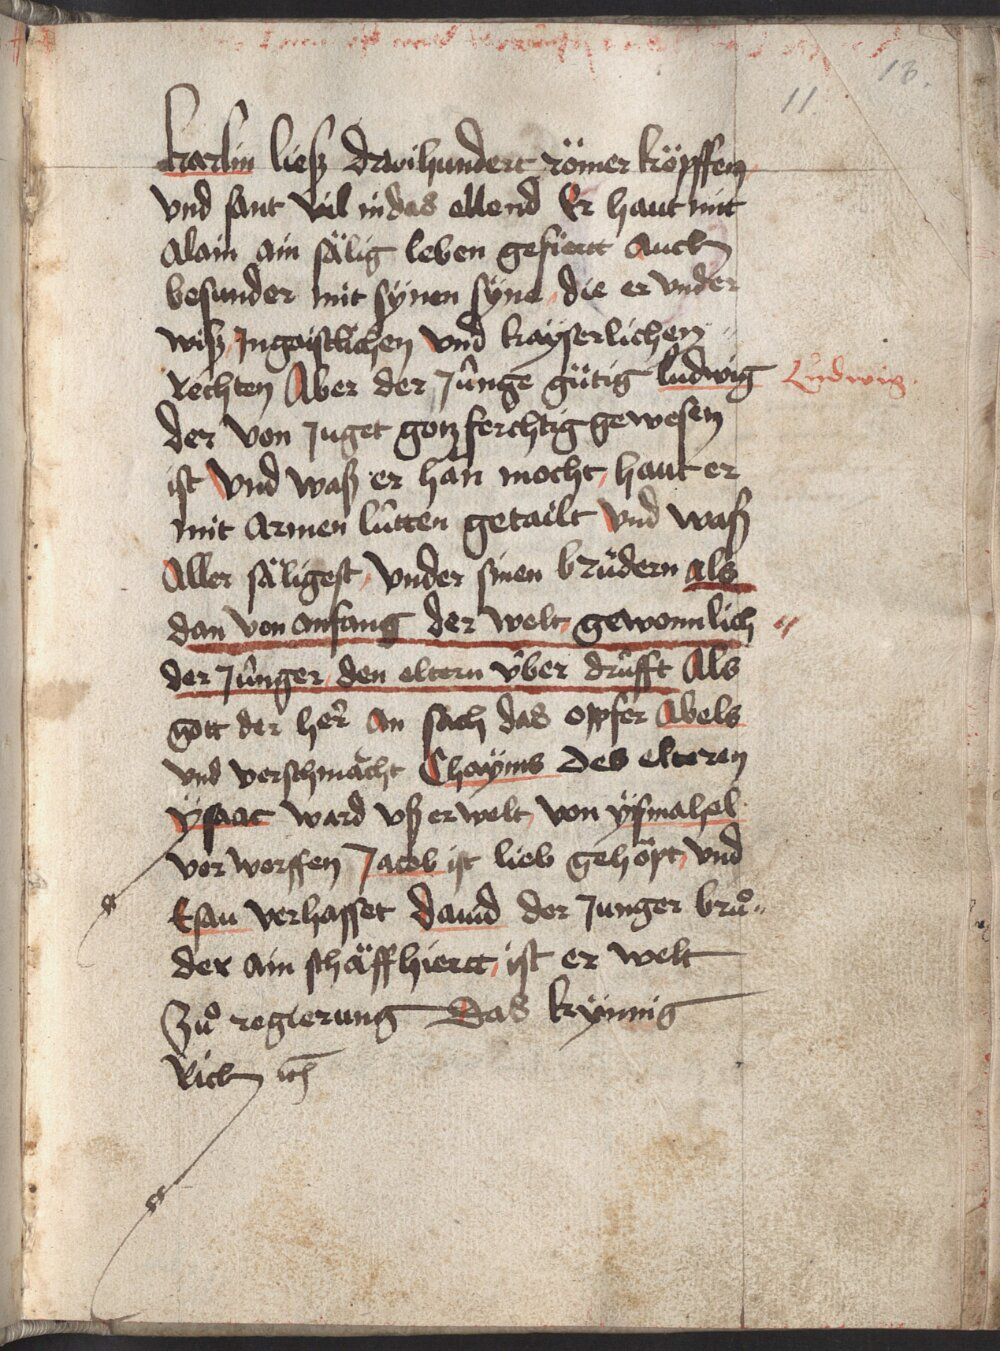 13.
11
karlin ließ drwihundert römer köpffen
vnd sant vil in das ellend Er haut mit
Alain ain sälig leben gefüertt Auch
besunder mit sÿnen sÿne die er vnder
wiß In gaistlichen vnd kaÿserlichen
rechten Aber der Jünge gütig ludwig
Ludwig.
der von Juget gotz forchtig gewesen
ist vnd waß er han mocht haut er
mit Armen lütten getailt vnd waß
Aller säligest vnder sinen brüdern als
dan von anfang der welt gewonnlich
der Jünger den eltern über drüfft Als
gott der her An sach das opffer Abels
vnd verschmächt Chaÿms des elteren
ÿsaac ward vß erwelt von ÿsmahel
verworffen Jacob ist lieb gehöpt vnd
Esau verhasset dauid der Junger brů
der ain schäffhiertt ist er welt
Zů regierung Das kÿnnig
Rich ich